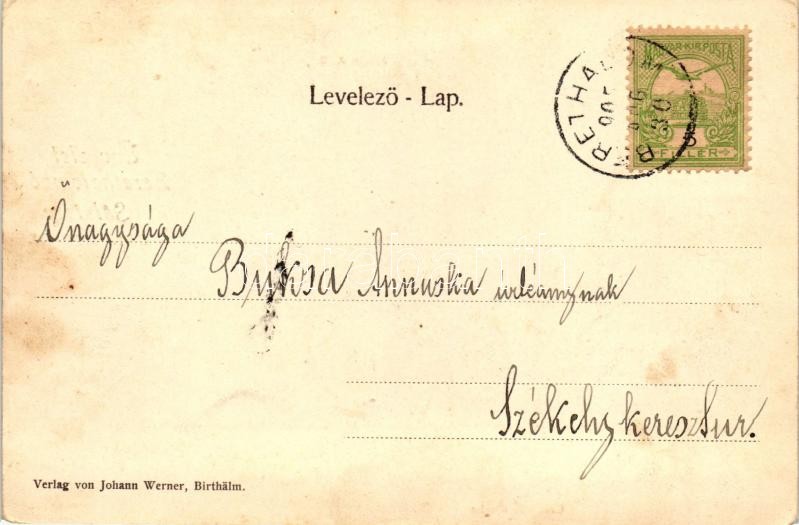 Levelező - Lap.
MAGYAR·KIR·POSTA
5
FILLÉR
Őnagysága
Buksa Annuska úrleánynak
Székelykeresztur.
Verlag von Johann Werner, Birthälm.